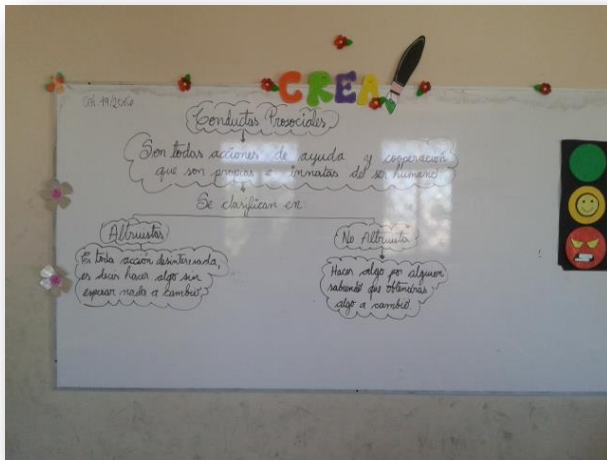 CREA
Conductas Prosociales
Son todas acciones de ayuda y cooperación
que son propias e innatas del ser humano
Se clasifican en
Altruistas
Es toda acción desinteresada,
es decir hacer algo sin
esperar nada a cambio
No Altruista
Hacer algo por alguien
sabiendo que obtendras
algo a cambio.